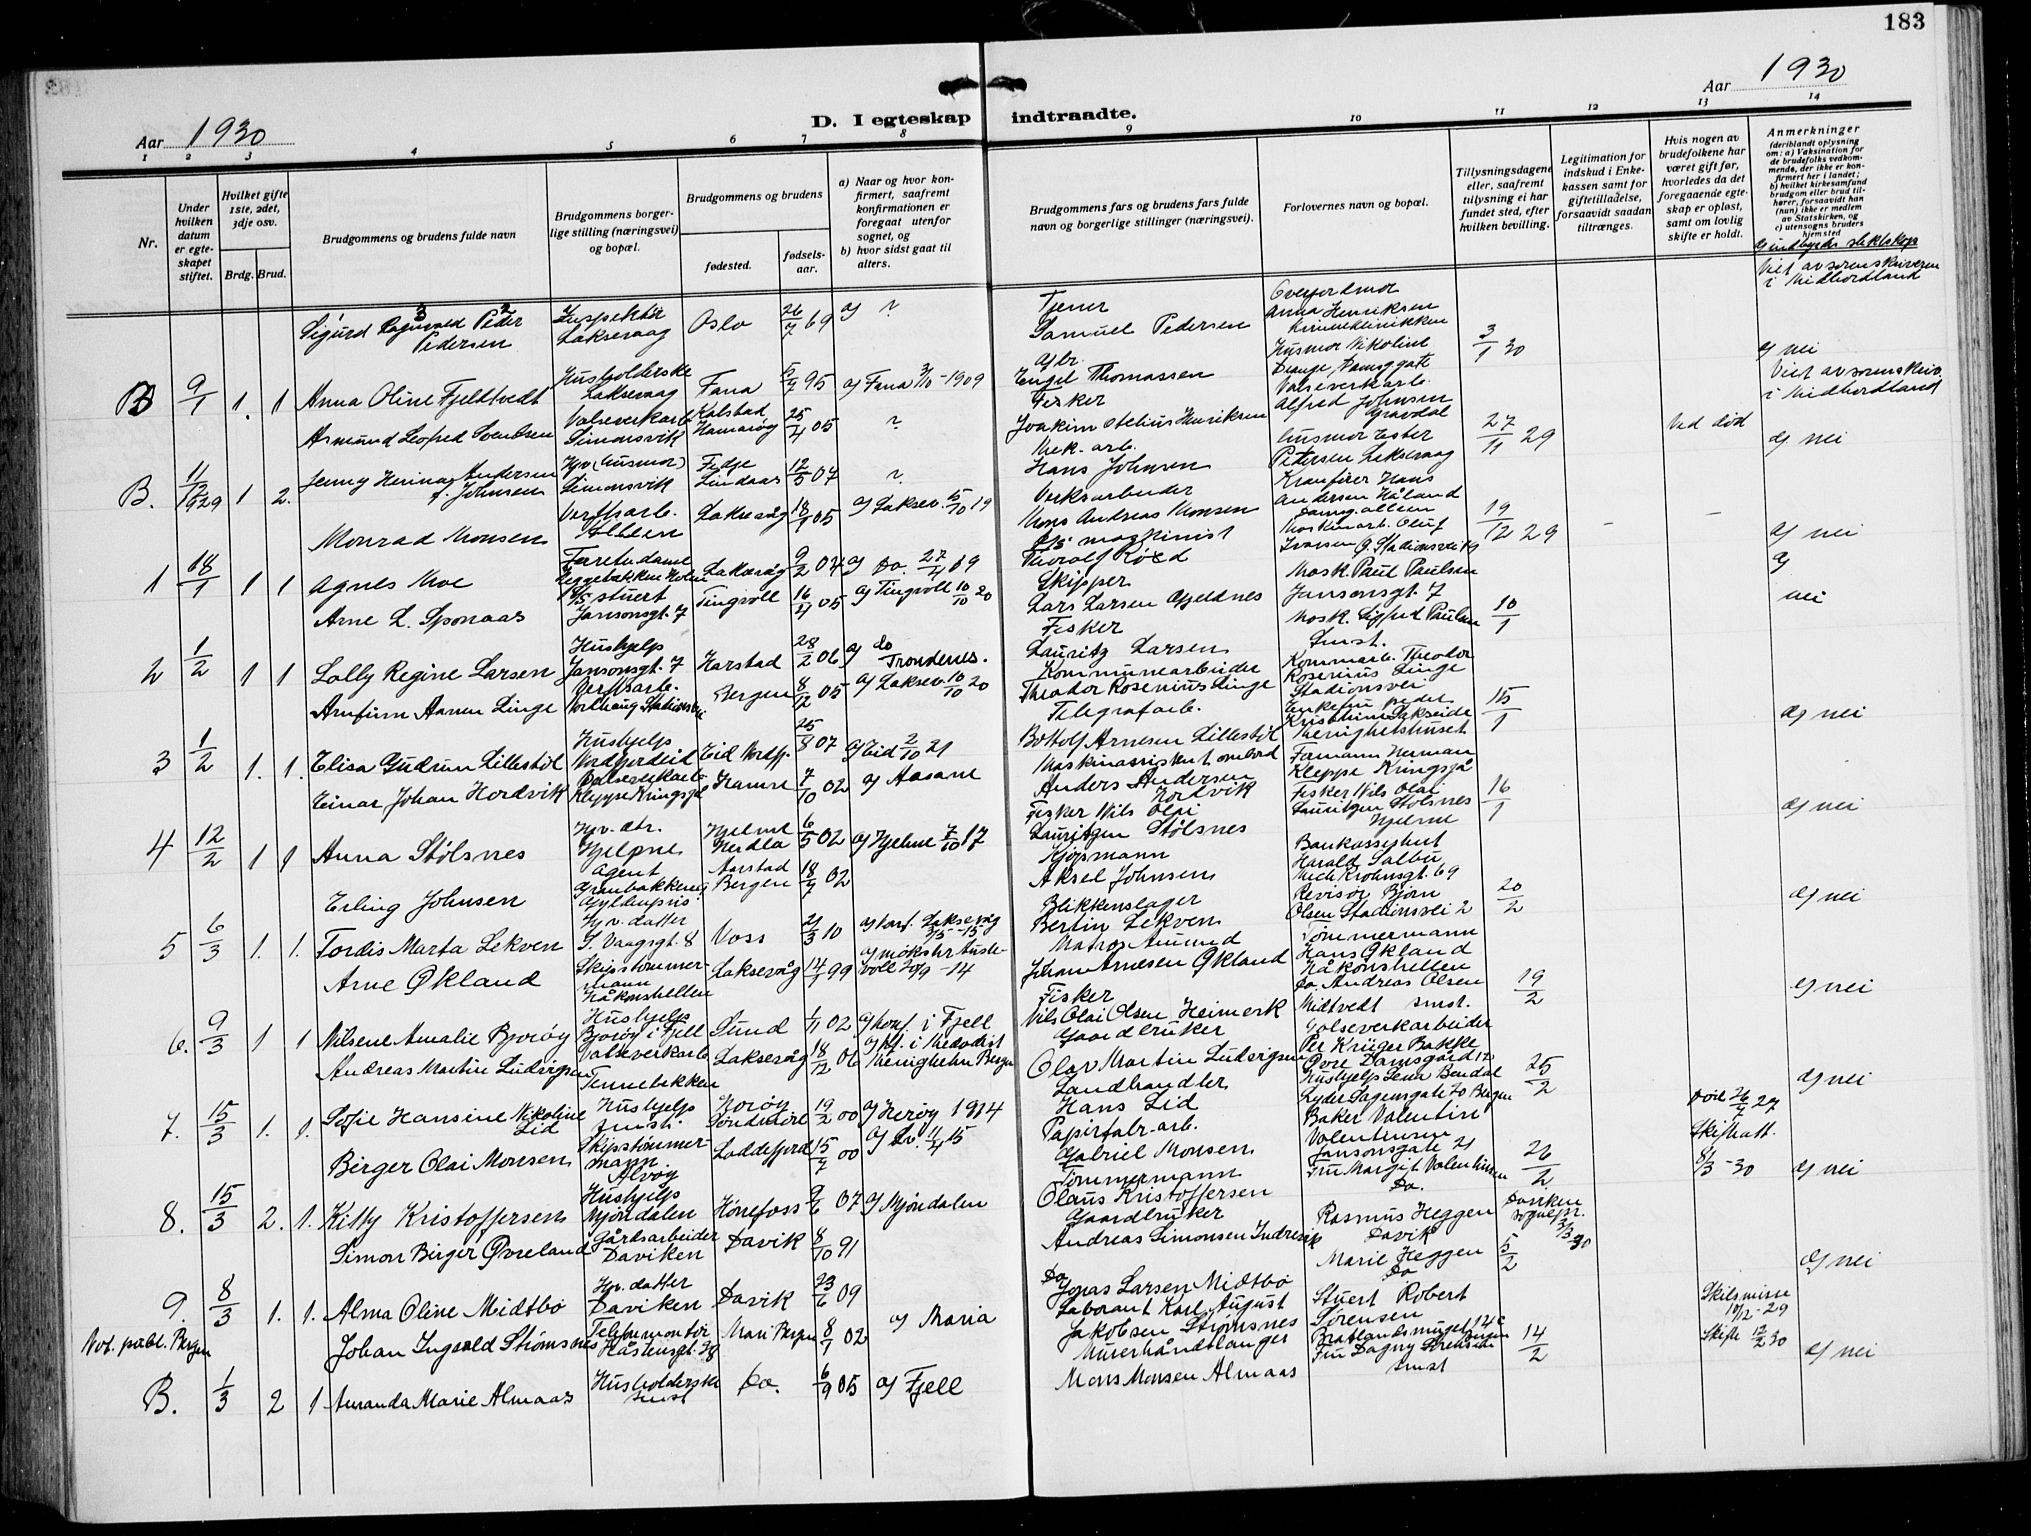 183
Aar 1930
D. I egteskap indtraadte.
Aar 1930
1 2 3 4 5 6 7 8 9 10 11 12 13 14
Nr.
Under hvilken datum er egteskapet stiftet.
Hvilket gifte 1ste, 2det, 3dje osv.
Brdg. Brud.
Brudgommens og brudens fulde navn
Brudgommens borgerlige stilling (næringsvei) og bopæl.
Brudgommens og brudens
fødested.
fødselsaar.
a) Naar og hvor konfirmert, saafremt konfirmationen er foregaat utenfor sognet, og
b) hvor sidst gaat til alters.
Brudgommens fars og brudens fars fulde navn og borgerlige stillinger (næringsvei).
Forlovernes navn og bopæl.
Tillysningsdagene eller, saafremt tillysning ei har fundet sted, efter hvilken bevilling.
Legitimation for indskud i Enkekassen samt for giftetilladelse, forsaavidt saadan tiltrænges.
Hvis nogen av brudefolkene har været gift før, hvorledes da det foregaaende egteskap er opløst, samt om lovlig skifte er holdt.
Anmerkninger
(deriblandt oplysning om: a) Vaksination for de brudefolks vedkommende, der ikke er konfirmert her i landet; b) hvilket kirkesamfund brudgom eller brud tilhører, forsaavidt han (hun) ikke er medlem av Statskirken, og c) utensogns bruders hjemsted
Sigurd Ragnvald Peder Pedersen
Inspektør Laksevaag
Oslo
26/7 69
a) ?
Tjener
Samuel Pedersen
Anna Henriksen
Viet av sorenskriveren i Midhordland
B 9/1 1. 1 Anna Oline Fjeldtvedt
Husholderske Laksevaag
Fana
95
a) Fana 3/10-1909
Engel Thomassen
Damsggate
3/1 30
nei
Asmund Leofred Svendsen
Valseverkarb. Simonsvik
Hamarøy
25/4 05
?
Fisker
Joakim Henriksen
Valseverkarb. Alfred Johnsen Gravdal
Viet av sorenskriv. i Midhordland
B. 11/12 1929 1 2. Jenny Andersen f. Johnsen
Hv. (husmor) Simonsvik
Fedje Lindaas
12/5 07
?
Mek. arb. Hans Johnsen
Husmor Ester Petersen Laksevaag
27/11 29
Ved død
nei
Monrad Monsen
Verftsarb.
Laksevåg
18/1 05
a) Laksev. 5/10 19
Verksarbeider
Mons Andreas Monsen
Kranfører Hans Andersen Håland
1 18/1 1 1 Agnes Moe
Laksevåg
9/2 04
a) Do. 27/4 19
maskinist
Thorolf
Maskinarb. Oluf Ivarsen
19/12 29
- -
nei
Arne L. Sponaas
stuert Jansonsgt. 7
Tingvoll
16/4 05
a) Tingvoll 10/10 20
Skipper
Lars Larsen Gjeldnes
Mask. Paul Paulsen Jansonsgt. 7
2 1/2 1 1 Lolly Regine Larsen
Hushjelp Jansonsgt. 7
Harstad
28/2 06
a) do Trondenes.
Fisker
Lauritz Larsen
Mask. Sigfred Paulsen Smst.
10/1
nei
Arnfinn Aanen Linge
Verftsarb.
Bergen
8/12 05
a) Laksev. 10/10 20
Kommunearbeider
Theodor Rosenius Linge
Kommarb. Theodor Rosenius Linge Stadionsvei
3 1/2 1. 1. Elisa Gudrun Lillestøl
Hushjelp Nordfjordeid
Eid Nordfj.
25/8 07
a) Eid 2/10 21
Telegrafarb.
Bottolf Arnesen Lillestøl
15/1
a) nei
Einar Johan Hordvik
Valseverkarb. Kleppe Kringsjå
Hamre
7/10 02
a) Aasane
Anders Andersen Hordvik
Formann Herman Kleppe Kringsjå
4 12/2 1 1 Anna Stølsnes
Hv. dtr. Hjelme
Hjelme Herdla
6/5 02
a) Hjelme 7/10 17
Fisker Nils Olai Lauritsen Stølsnes
Fisker Nils Olai Lauritsen Stølsnes Hjelme
16/1
a) nei
Erling Johnsen
Agent
Aarstad Bergen
18/7 02
Kjøpmann
Aksel Johnsen
Bankassistent Harald Salbu Mich Krohnsgt. 69
5 6/3 1. 1. Tordis Marta Lekven
Hv. datter S. Vaagsgt. 8
Voss
21/3 10
a) konf. Laksevåg
Blikkenslager
Bertin Lekven
Revisor Bjørn Olsen Stadionsvei 2
20/2
a) nei
Arne Økland
Skipstømmermann Håkonshellen
Laksevåg
14/1 99
Johan Arnesen Økland
Tømmermann Hans Økland Håkonshellen
6. 9/3 1 1 Nilsene Amalie Bjorøy
Hushjelp Bjorøy i Fjell
Sund
1/11 02
a) konf. i Fjell
Fisker
Nils Olai Olsen Heimerk
Do. Andreas Olsen Midtvedt smst.
19/2
a) nei
Andreas Martin Ludvigsen
Valseverkarb. Tennebekken
Laksevåg
18/12 06
a) kf. i Metodist Menigheten Bergen
Gaardbruker
Olav Martin Ludvigsen
Valseverkarbeider Per Krüger Bakke Øvre Damsgård
7. 15/3 1. 1. Sofie Hansine Nikoline Lid
Hushjelp smst.
Herøy Søndmøre
19/2 00
a) Herøy 1914
Landhandler
Hans Lid
Hushjelp Lena Bendal Lyder Sagensgate 20 Bergen
25/2
a) nei
Birger Olai Monsen
Skipstømmermann Alvøy
Loddefjord
15/7 00
a) Lv. 11/4 15
Papirfabr. arb.
Gabriel Monsen
Baker Valentin Valentinsen Jansonsgate 21
Død 26/7 27 Skiftatt. 8/3-30
8. 15/3 2. 1. Kitty Kristoffersen
Hushjelp Mjøndalen
Hønefoss
9/6 07
a) Mjøndalen
Tømmermann
Olaus Kristoffersen
Fru Margit Valentinsen Do.
26/2
a) nei
Simon Birger Øvreland
Gårdsarbeider Daviken
Davik
8/10 91
Gaardbruker
Andreas Simonsen Indrevik
Rasmus Heggen Davik
9. 8/3 1. 1. Alma Oline Midtbø
Hv. datter Daviken
Davik
23/6 09
Do Jonas Larsen Midtbø
Marie Heggen Do
5/2
a) nei
Not. publ. Bergen
Johan Ingvald Strømsnes
Telefonmontør Håsteinsgt. 38
Mari Bergen
8/1 02
a) Maria
Laborant Karl August Jakobsen Strømsnes
Stuert Robert Sørensen
Skilsmisse 10/12-29 Skifte 12/2 30
B. 1/3 2 1 Amanda Marie Almaas
Husholderske smst
Do.
6/9 05
a) Fjell
Murerhåndtlanger
Mons Monsen Almaas
Fru Dagny Sørensen smst
14/2
a) nei